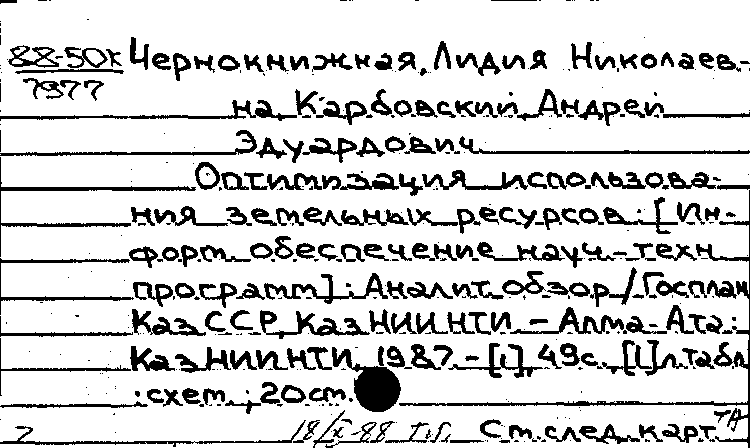 88-50к Чернокнижная, Лидия Николаев-
7977
на, Карбовский, Андрей
Эдуардович.
Оптимизация использова-
ния земельных ресурсов: [Ин-
форм. обеспечение науч.-техн.
программ]: Аналит. обзор / Госплан
КазССР, КазНИИНТИ. - Алма-Ата:
КазНИИНТИ, 1987. - [1], 49с., [1]л.табл.
: схем.; 20см.
18/X-88 Т.Г. См.след.карт.